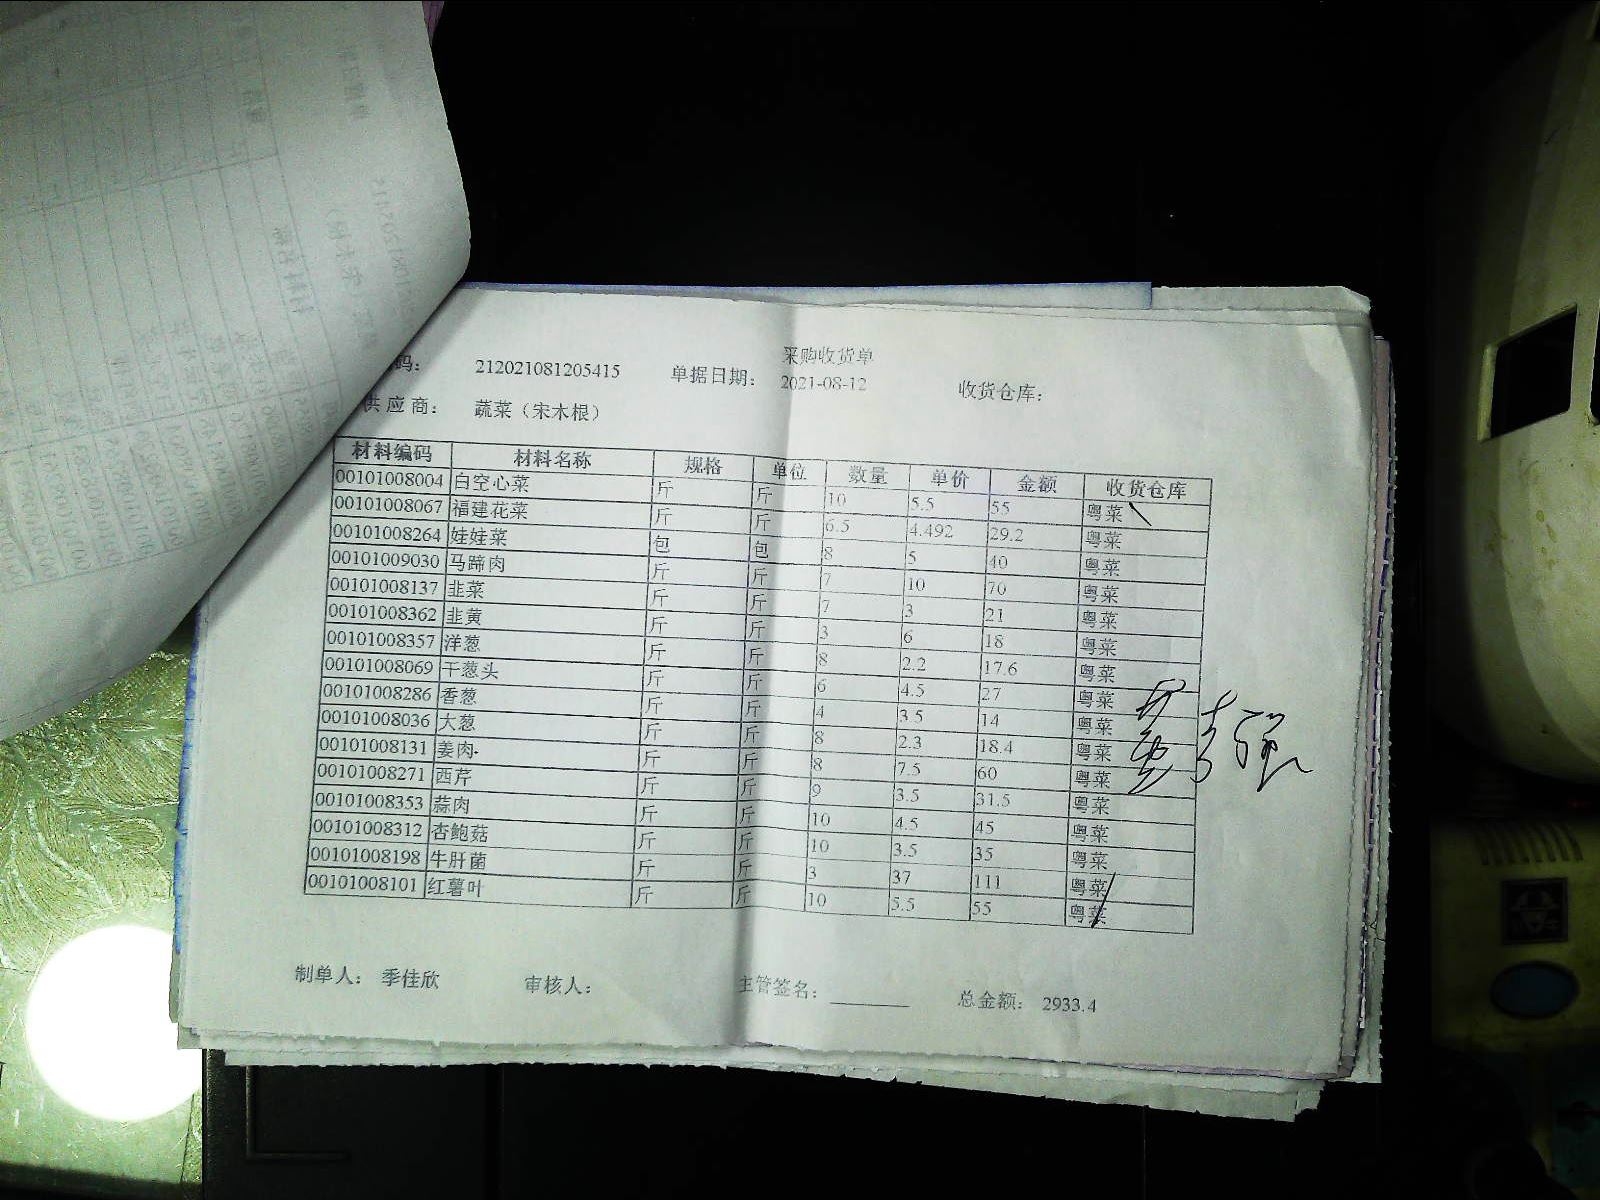 采购收货单
码： 212021081205415 单据日期： 2021-08-12 收货仓库：
供应商： 蔬菜（宋木根）
材料编码 材料名称 规格 单位 数量 单价 金额 收货仓库
00101008004 白空心菜 斤 斤 10 5.5 55 粤菜
00101008067 福建花菜 斤 斤 6.5 4.492 29.2 粤菜
00101008264 娃娃菜 包 包 8 5 40 粤菜
00101009030 马蹄肉 斤 斤 7 10 70 粤菜
00101008137 韭菜 斤 斤 7 3 21 粤菜
00101008362 韭黄 斤 斤 3 6 18 粤菜
00101008357 洋葱 斤 斤 8 2.2 17.6 粤菜
00101008069 干葱头 斤 斤 6 4.5 27 粤菜
00101008286 香葱 斤 斤 4 3.5 14 粤菜
00101008036 大葱 斤 斤 8 2.3 18.4 粤菜
00101008131 姜肉 斤 斤 8 7.5 60 粤菜
00101008271 西芹 斤 斤 9 3.5 31.5 粤菜
00101008353 蒜肉 斤 斤 10 4.5 45 粤菜
00101008312 杏鲍菇 斤 斤 10 3.5 35 粤菜
00101008198 牛肝菌 斤 斤 3 37 111 粤菜
00101008101 红薯叶 斤 斤 10 5.5 55 粤菜
制单人： 季佳欣 审核人： 主管签名： 总金额： 2933.4